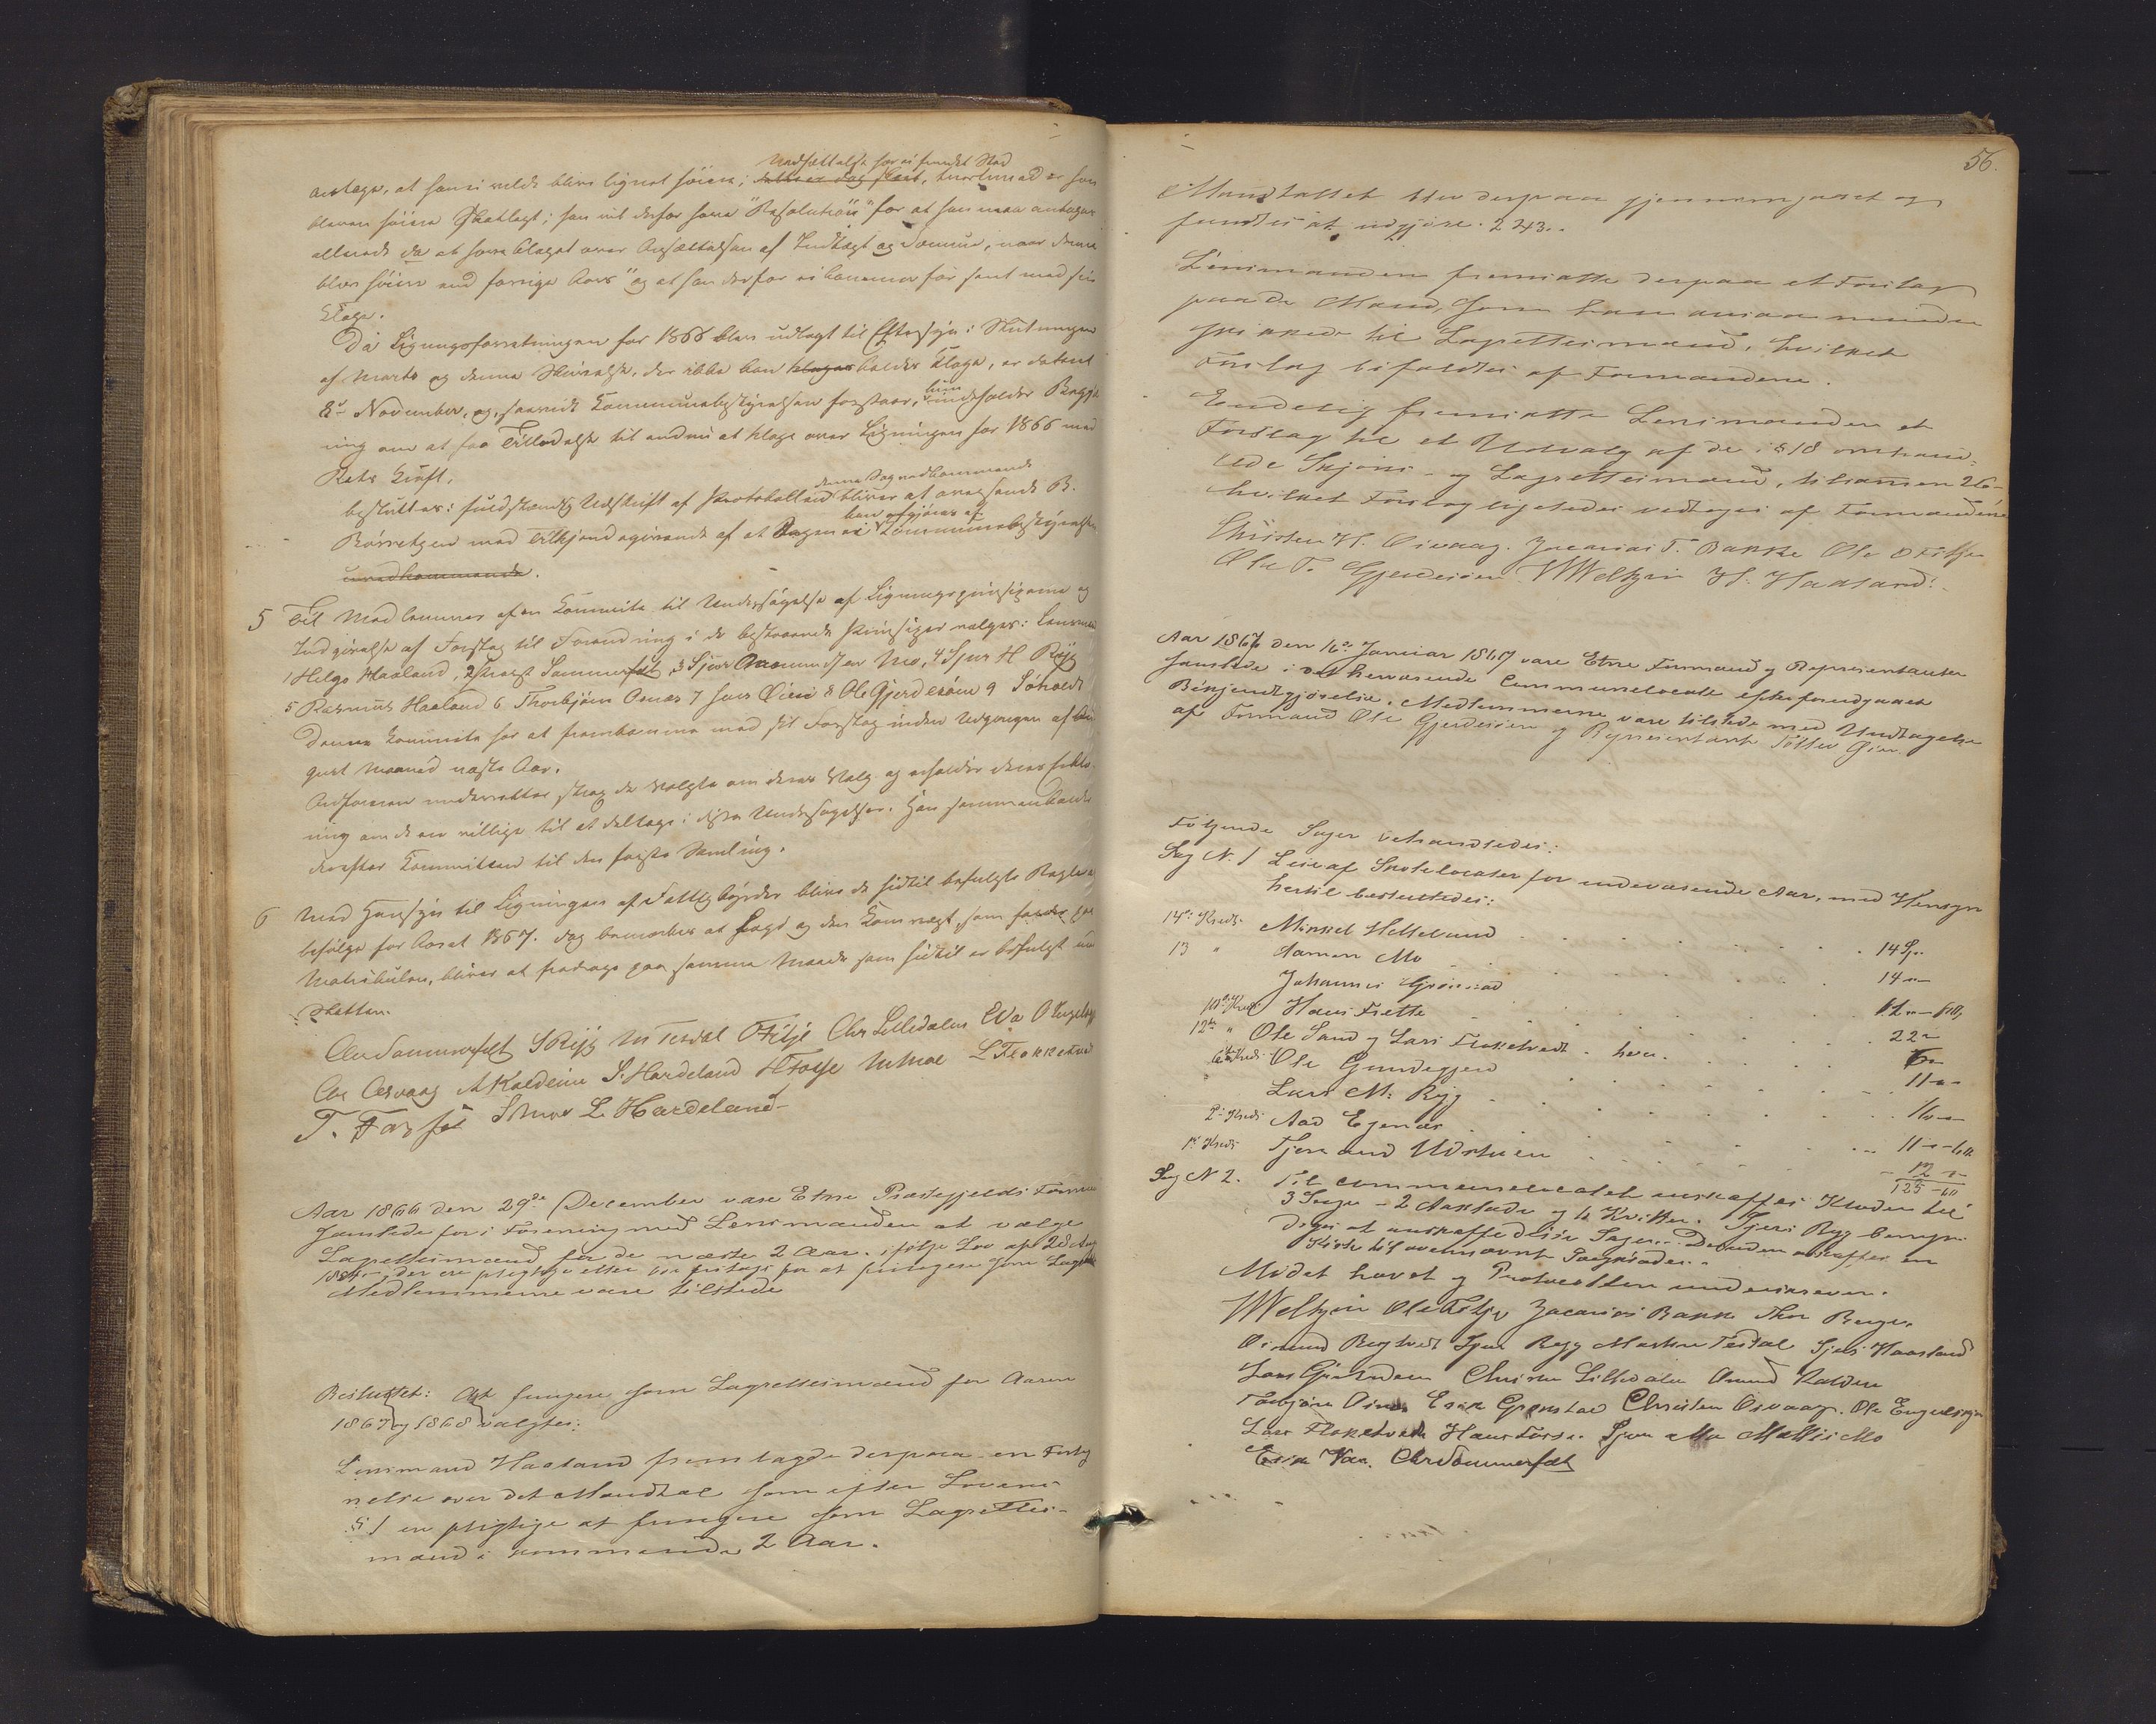 Nedsættelse har ei fundet Sted
antage, at han ei vilde blive lignet høiere; dette er dog skeet, tvertimod er han
bleven høiere Skatlagt; han vil derfor have "Resolution" for at han maa antages
allerede da at have klaget over Ansættelsen af Indtægt og Formue, naar denne
blev høiere end forrige Aars" og at han derfor ei kommer for sent med sin
Klage.
Da Ligningsforretningen for 1866 blev udlagt til Eftersyn i Slutningen
af Marts og denne Skrivelse, der ikke kan kaldes Klage, er dateret
8de November, og, saavidt Kommunebestyrelsen forstaar, kun indeholder Begjæ
ring om at faa Tilladelse til endnu at klage over Ligningen for 1866 med
Rets Kraft,
denne Sag vedkommende
besluttes: fuldstændig Udskrift af Protokollen bliver at oversende B.
kan afgjøres af
Børretzen med Tilkjendegivende af at Sagen ei Kommunebestyrelsen
uvedkommende.
5 Til Medlemmer af en Kommite til Undersøgelse af Ligningsprinsiperne og
Indgivelse af Forslag til Forandring i de bestaaende Prinsiper valges: Lensmand
1 Helge Haaland, 2 Provst Sommerfelt, 3 Sjur Amundsen Mo, 4 Sjur H Rygg
5 Rasmus Haaland 6 Thorbjørn Osnes 7 Hans Øien 8 Ole Gjerdesøen 9 Søholdt
Denne Kommite har at fremkomme med sit Forslag inden Udgangen af Au
gust Maaned næste Aar.
Ordføreren underretter strax de Valgte om deres Valg og erholder deres Erklæ
ring om de ere villige til at deltage i disse Undersøgelser. Han sammenkalder
derefter Kommiteen til den første Samling.
6 Med Hensyn til Ligningen af Fattigbyrder blive de hidtil befulgte Regler at
befølge for Aaret 1867. dog bemærkes at Lagd og den Kornvægt, som
Matrikulen, bliver at fradrage paa samme Maade som hidtil er befulgt
Skatten.
Chr Sommerfelt S Rygg M Tesdal O Fitje Chr Lilledalen E Va O Engelsgj
Chr Osvaag A Kaldeim S. Hardeland H Fosse M Moe L Flokketvedt
T. Fosse L. Hardeland
Aar 1866 den 29de December vare Etne Præstegjelds Formæ
Samlede for i Forening med Lensmanden at vælge
Lagrettesmænd for de næste 2 Aar. ifølge Lov af 28 Aug
1854 der ere pligtige eller fritages for at fungere som Lagrette
Medlemmerne vare tilstede
Besluttet: At fungere som Lagrettesmænd for Aarene
1867 og 1868 valgtes:
Lensmand Haaland fremlagde derpaa en Forteg
nelse over det Mandtal som efter Lovens
§ 1 er pligtige at fungere som Lagrettes-
mænd i kommende 2 Aar.
56.
Mandtallet blev derpaa gjennemgaaet og
fandtes at udgjøre 243.
Lensmanden fremsatte derpaa et Forslag
paa de Mænd, som han ansaa mindre
skikkede til Lagrettesmænd, hvilket
Forslag bifaldtes af Formændene.
Endelig fremsatte Lensmanden et
Forslag til et Udvalg af de i § 18 omhand-
lede Skjøns- og Lagrettesmænd, tilsammen 26
hvilket Forslag ligeledes vedtoges af Formændene
Christen H. Osvaag. Zacarias T. Bakke Ole O Fitje
Ole T. Gjerdesøen W Weltzin H. Haaland.
Aar 1867 den 16de Januar 1867 vare Etne Formænd og Repræsentanter
samlede i det herværende Communelocale efter foregaaet
Bekjendtgjørelse. Medlemmerne vare tilstede med Undtagelse
af Formand Ole Gjerdesøen og Repræsentant Tollev Øien.
Følgende Sager behandledes:
Sag N. 1 Leie af Skolelocaler for indeværende Aar, med Hensyn
hertil besluttedes:
14de Kreds Mikkel Helleland . . . 14 Sp.
13 " Aamon Mo . . . 14 " "
Johannes Grønstad . . . 12 " - 60
10de Kreds Hans Frette . . . 22 "
12te " Ole Sand og Lars Flokketvedt . hver . . 6 "
Kreds Ole Grindegjerd . . . 11 " "
Lars M. Rygg . . . 16 " "
2de Kreds Aad Egenæs . . . 11 " - 60
1ste Kreds Fjere and Udstuen . . . 12 " "
125 - 60
Sag N 2. Til Communelocalet anskaffes Klæder til
3 Senge - 2 Aaklæder og 12 Kvitler. Sjurs Rygg bemyn-
diges at anskaffe disse Sager. Desuden anskaffes en
Kiste til ovennævnte Sengklæder.
Mødet hævet og Protocollen underskreven.
W Weltzin Ole Fitje Zacarias Bakke Thor Berge.
Osmund Bergtvedt Sjur Rygg Morten Tesdal Sjur Haaland
Christen Lilledalen Amund Kaldeim
Torbjørn Osnes Erik Grønstad Christen Osvaag. Ole Engelsgjer
Lars Flokketvedt Hans Fosse. Sjur Mo Mathis Mo
Erik Vae. Chr Sommerfelt